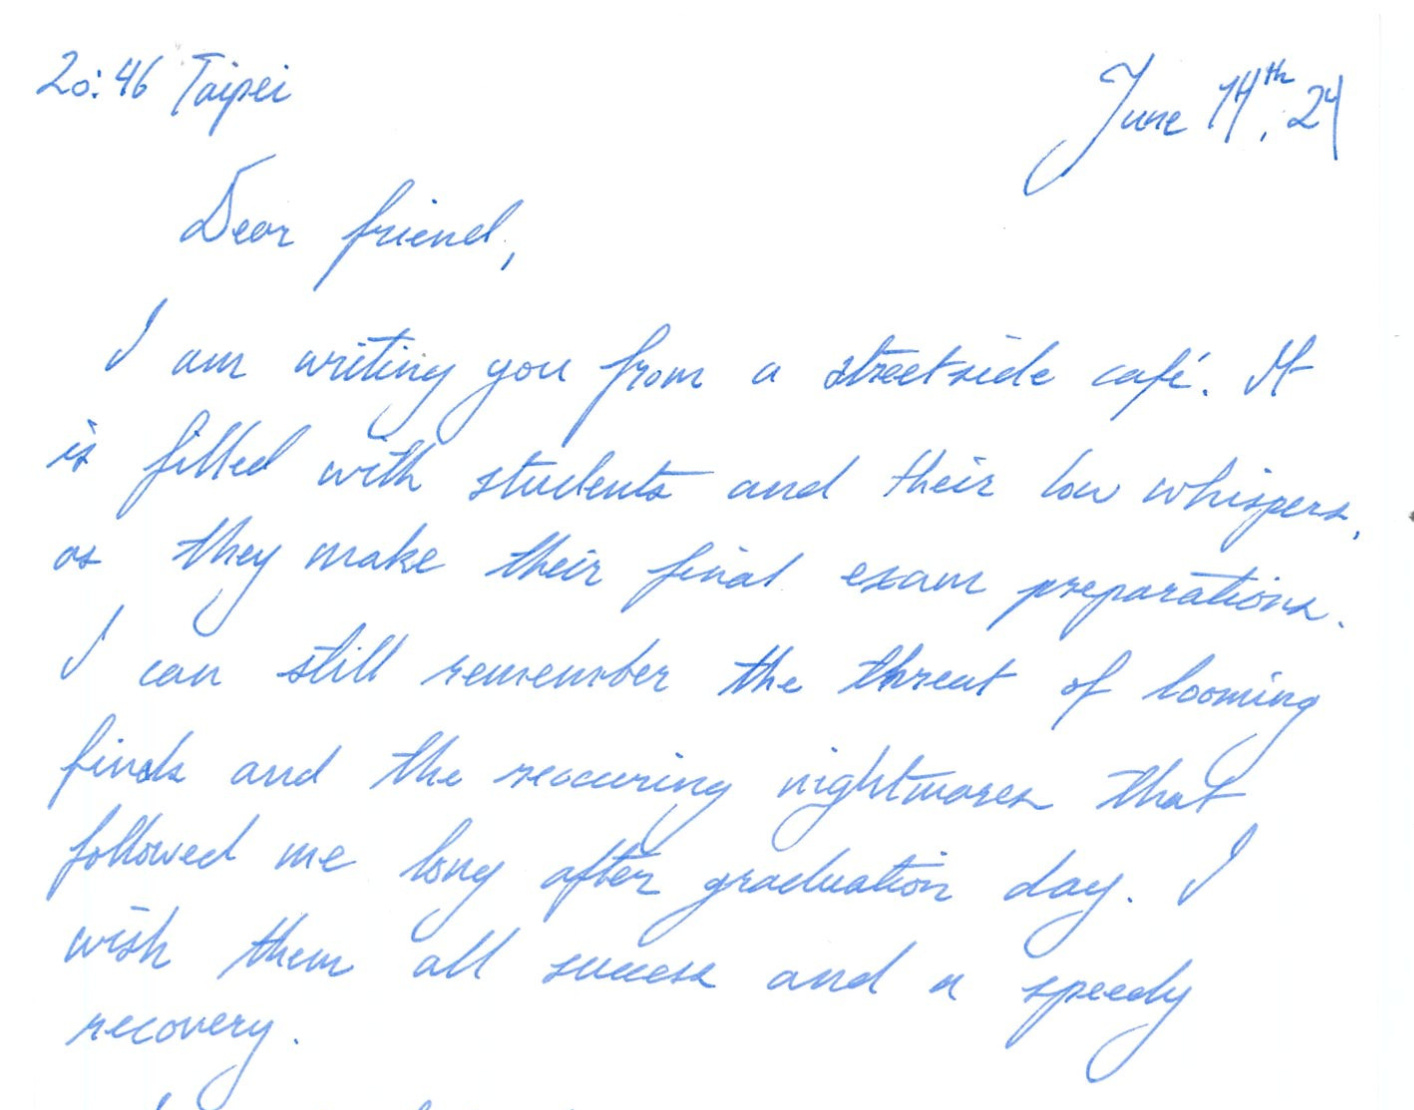 20:46 Taipei
June 14th, 24
Dear friend,
I am writing you from a streetside café. It
is filled with students and their low whispers,
as they make their final exam preparations.
I can still remember the threat of looming
finals and the reoccuring nightmares that
followed me long after graduation day. I
wish them all success and a speedy
recovery.